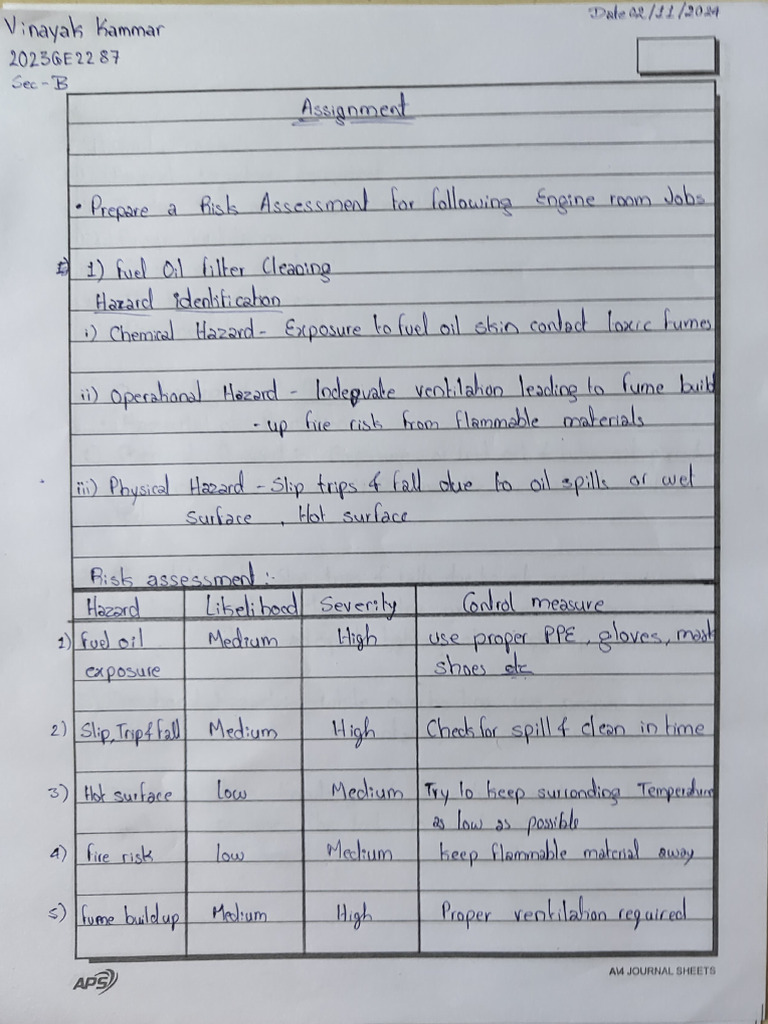 Vinayak Kammar
Date 02/11/2024
2023GE2287
Sec-B
Assignment
• Prepare a Risk Assessment for following Engine room Jobs
1) Fuel Oil Filter Cleaning
Hazard identification
i) Chemical Hazard - Exposure to fuel oil skin contact toxic fumes
ii) Operational Hazard - Indequate ventilation leading to fume build
-up fire risk from flammable materials
iii) Physical Hazard - Slip trips & fall due to oil spills or wet
Surface, Hot surface
Risk assessment :-
Hazard Likelihood Severity Control measure
1) Fuel oil Medium High use proper PPE, gloves, mask
exposure shoes etc
2) Slip, Trip & fall Medium High Check for spill & clean in time
3) Hot surface Low Medium Try to keep surronding Temperature
as low as possible
4) fire risk Low Medium keep flammable material away
5) fume buildup Medium High Proper ventilation required
APS
AM JOURNAL SHEETS